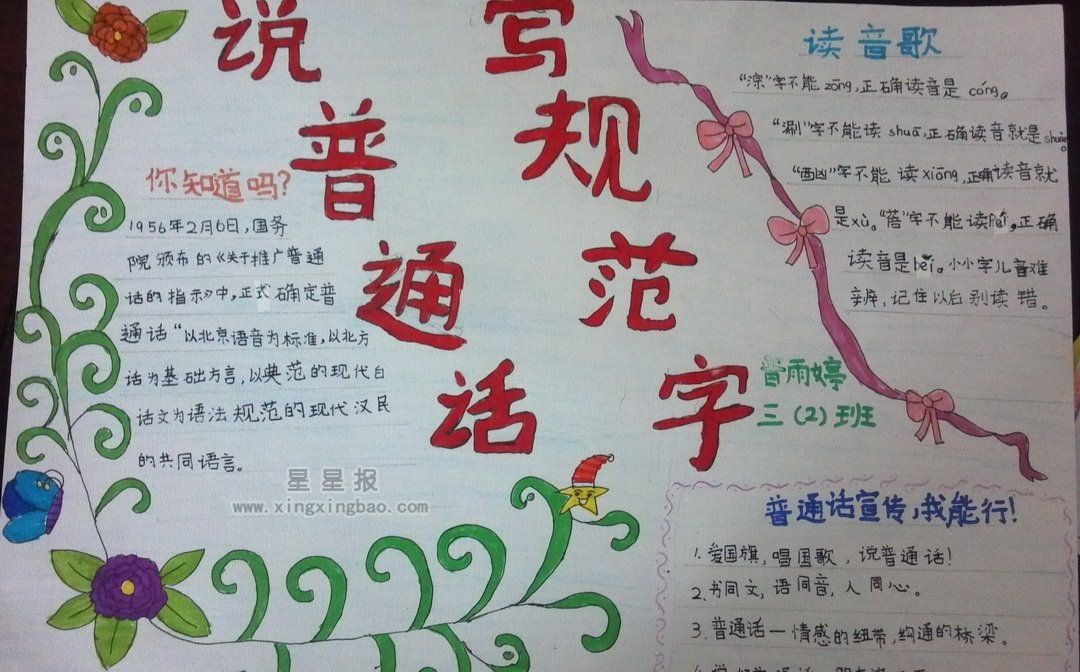 说普通话
写规范字
你知道吗?
1956年2月6日,国务
院颁布的《关于推广普通
话的指示》中,正式确定普
通话“以北京语音为标准,以北方
话为基础方言,以典范的现代白
话文为语法规范的现代汉民
的共同语言。
星星报
www.xingxingbao.com
读音歌
“淙”字不能zōng,正确读音是cóng。
“涮”字不能读shuā,正确读音就是
“酗”字不能读xiōng,正确读音就
是xù。“蓓”字不能读péi,正确
读音是bèi。小小字儿音难
辨,记住以后别读错。
雨婷
三(2)班
普通话宣传,我能行!
1.爱国旗,唱国歌,说普通话!
2.书同文,语同音,人同心。
3.普通话—情感的纽带,沟通的桥梁。